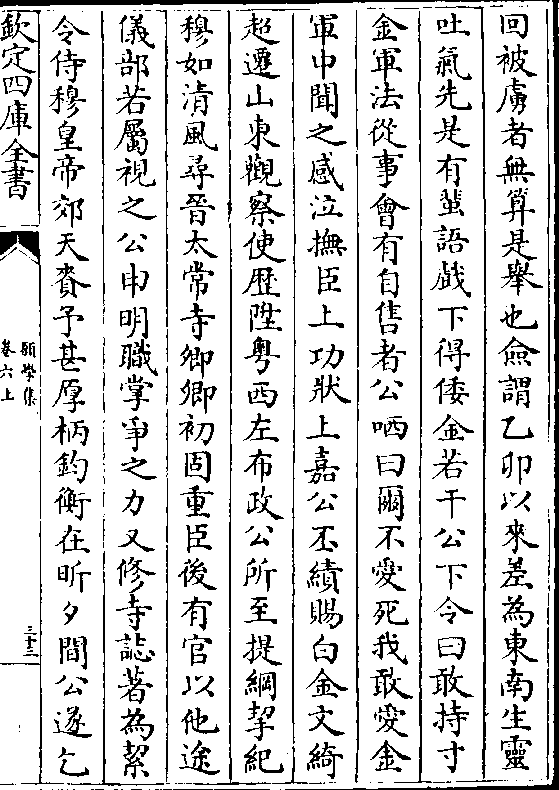 回被虜者無算是舉也僉謂乙卯以來差為東南生靈
吐氣先是有蜚語戲下得倭金若干公下令曰敢持寸
金軍法從事會有自售者公哂曰爾不愛死我敢愛金
軍中聞之感泣撫臣上功狀上嘉公丕績賜白金文綺
超遷山東觀察使歴陞粤西左布政公所至提綱挈紀
穆如清風尋晉太常寺卿卿初固重臣後有官以他途
儀部若屬視之公申明職掌爭之力又修寺誌著為絜
令侍穆皇帝郊天賚予甚厚柄鈞衡在昕夕間公遂乞
欽定四庫全書
願學集
卷六上
三十三